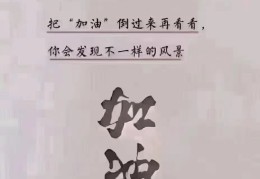 把“加油”倒过来再看看，
你会发现不一样的风景
加
油